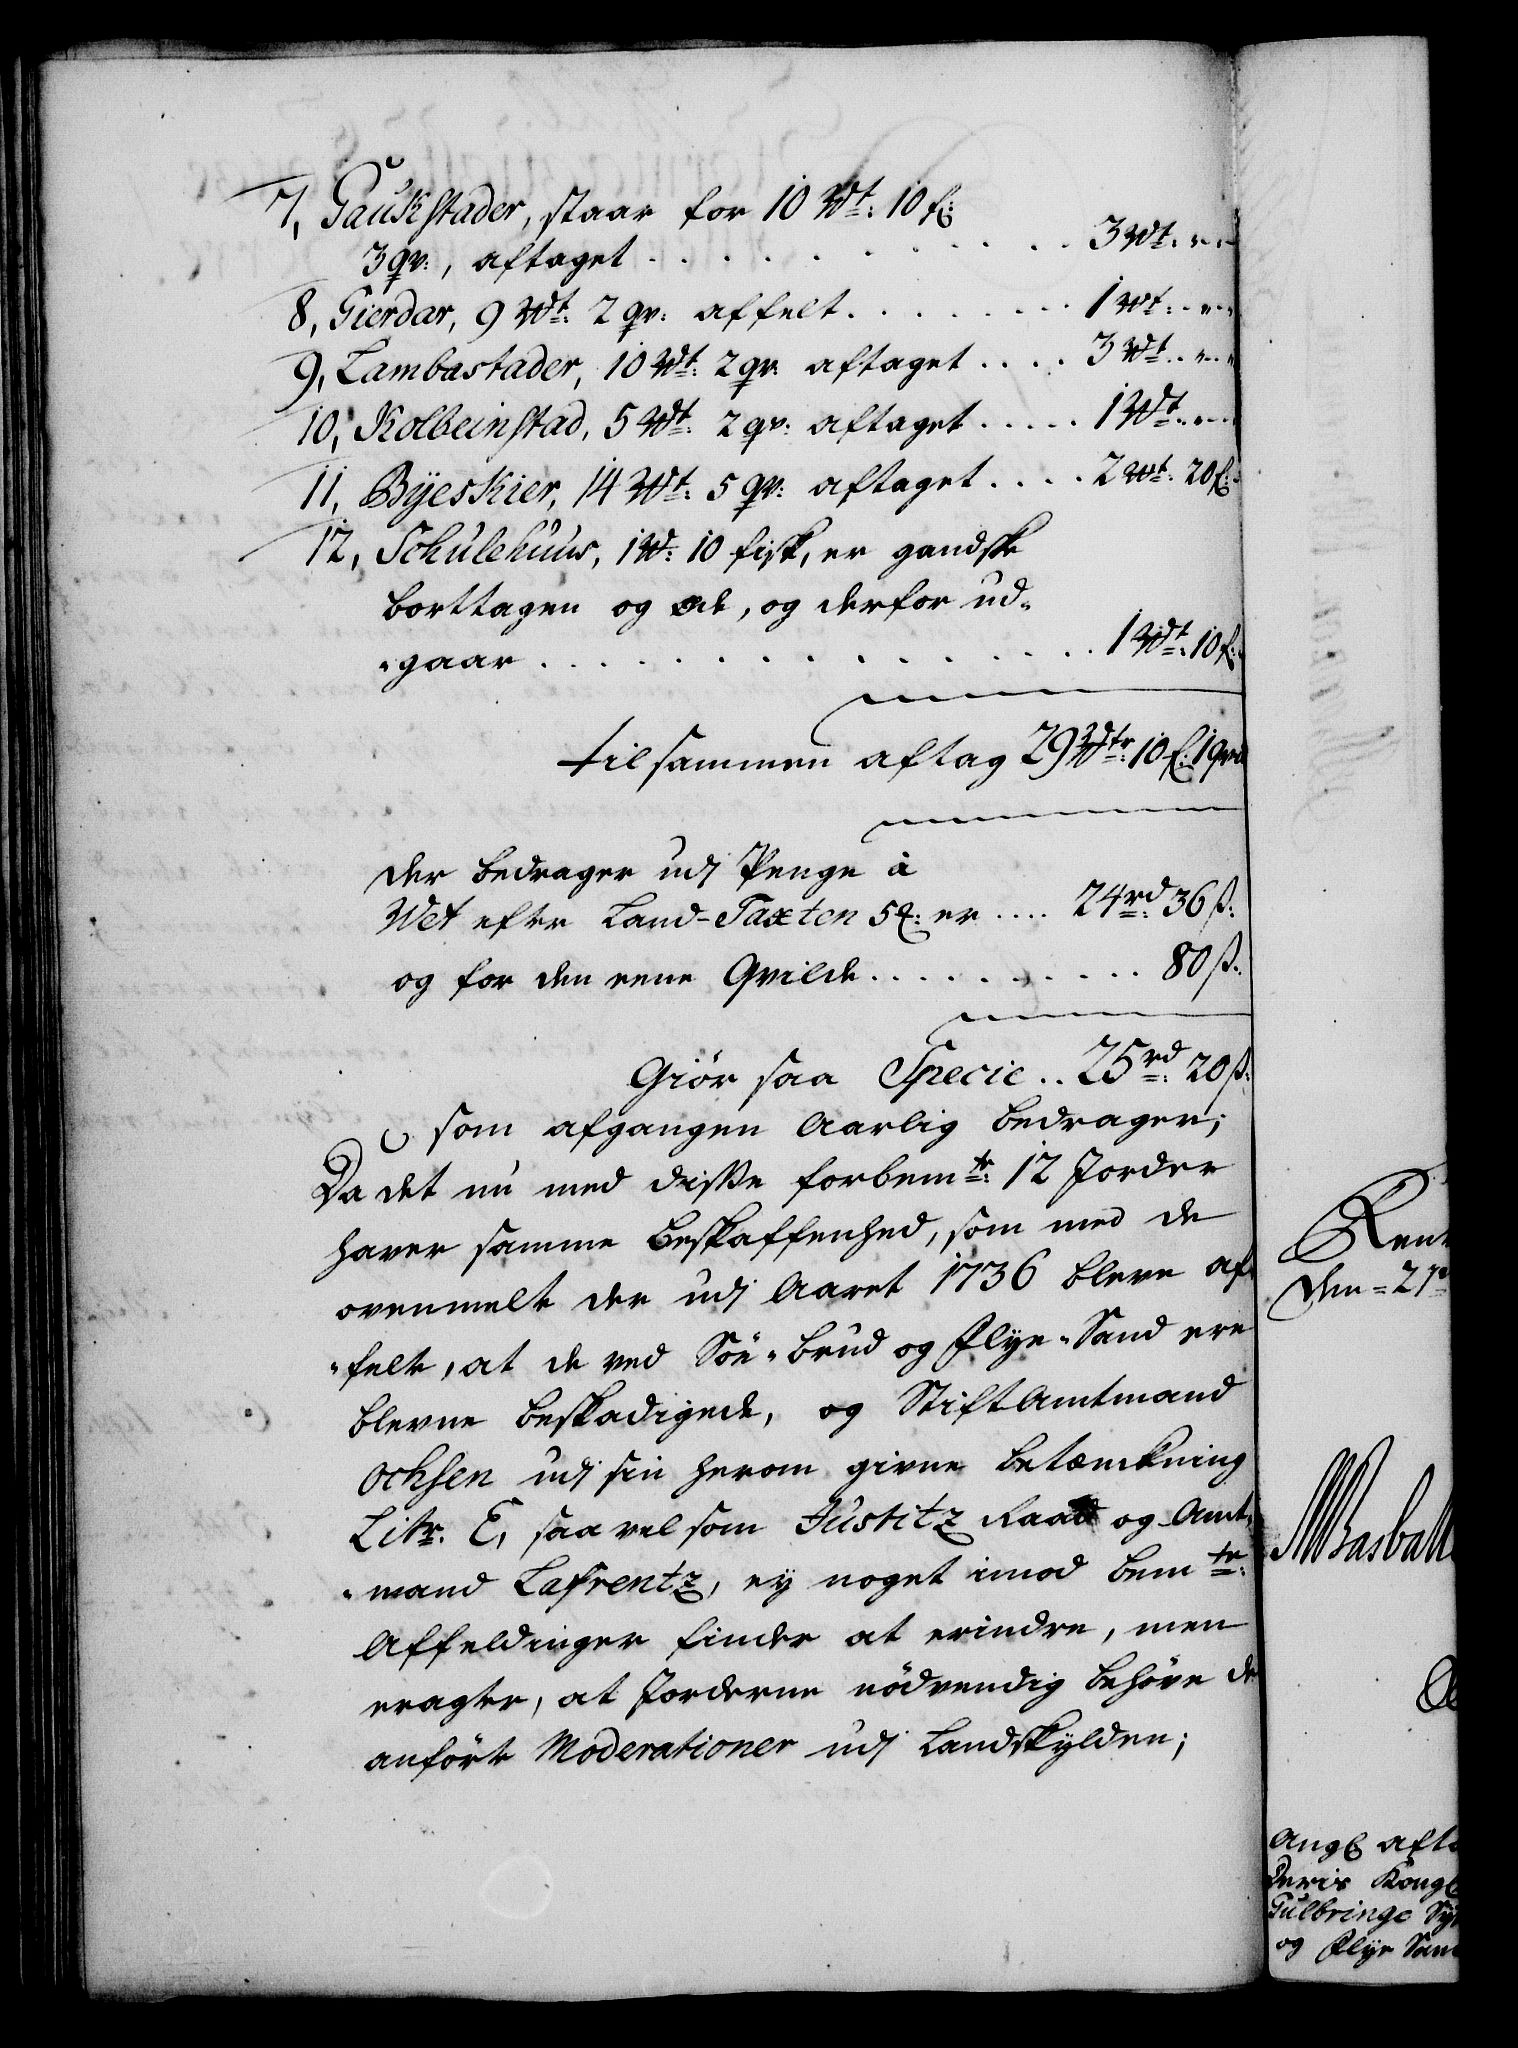 7, Gaukstader, staar for 10 Wdt: 10 f:
3 qv:, aftaget . . . . . . . . 3 Wdt: " "
8, Gierdar, 9 Wdt: 2 qv: affelt . . . . . . 1 Wdt: " "
9, Lambastader, 10 Wdt: 2 qv: aftaget . . . . 3 Wdt: " "
10, Kolbeinstad, 5 Wdt: 2 qv: aftaget . . . . . 1 Wdt: " "
11, Byeskier, 14 Wdt: 5 qv: aftaget . . . . 2 Wdt: 20 f:
12, Schulehuus, 1 Wd: 10 fisk, er gandske
borttagen og øde, og derfor ud-
-gaar . . . . . . . . . . . . . . . 1 Wdt: 10 f:
tilsammen aftag 29 Wdtr: 10 f: 1 qvil
der bedrager udj Penge à
Wet efter Land-Taxten er .... 24 rd: 36 ß:
og for den eene Qvilde . . . . . . . . . . 80 ß:
Giör saa Specie .. 25 rd: 20 ß:
som afgangen Aarlig bedrager;
Da det nu med disse forbemte: 12 Jorder
haver samme beskaffenhed, som med de
ovenmelte der udj Aaret 1736 bleve af-
-felte, at de ved Söe-brud og Flye-Sand ere
blevne beskadigede, og StiftAmtmand
Ochsen udj sin herom givne betænkning
Litr. E, saavelsom Justitz Raad og Amt-
-mand Lafrentz, ey noget imod bemte:
Affeldinger finder at erindre, men
eragter, at Jorderne nödvendig behöve de
anförte Moderationer udj Landskylden;
Rent
Den 27
Ang aft
Deris Kongl
Gulbringe Sy
og Flye Sand